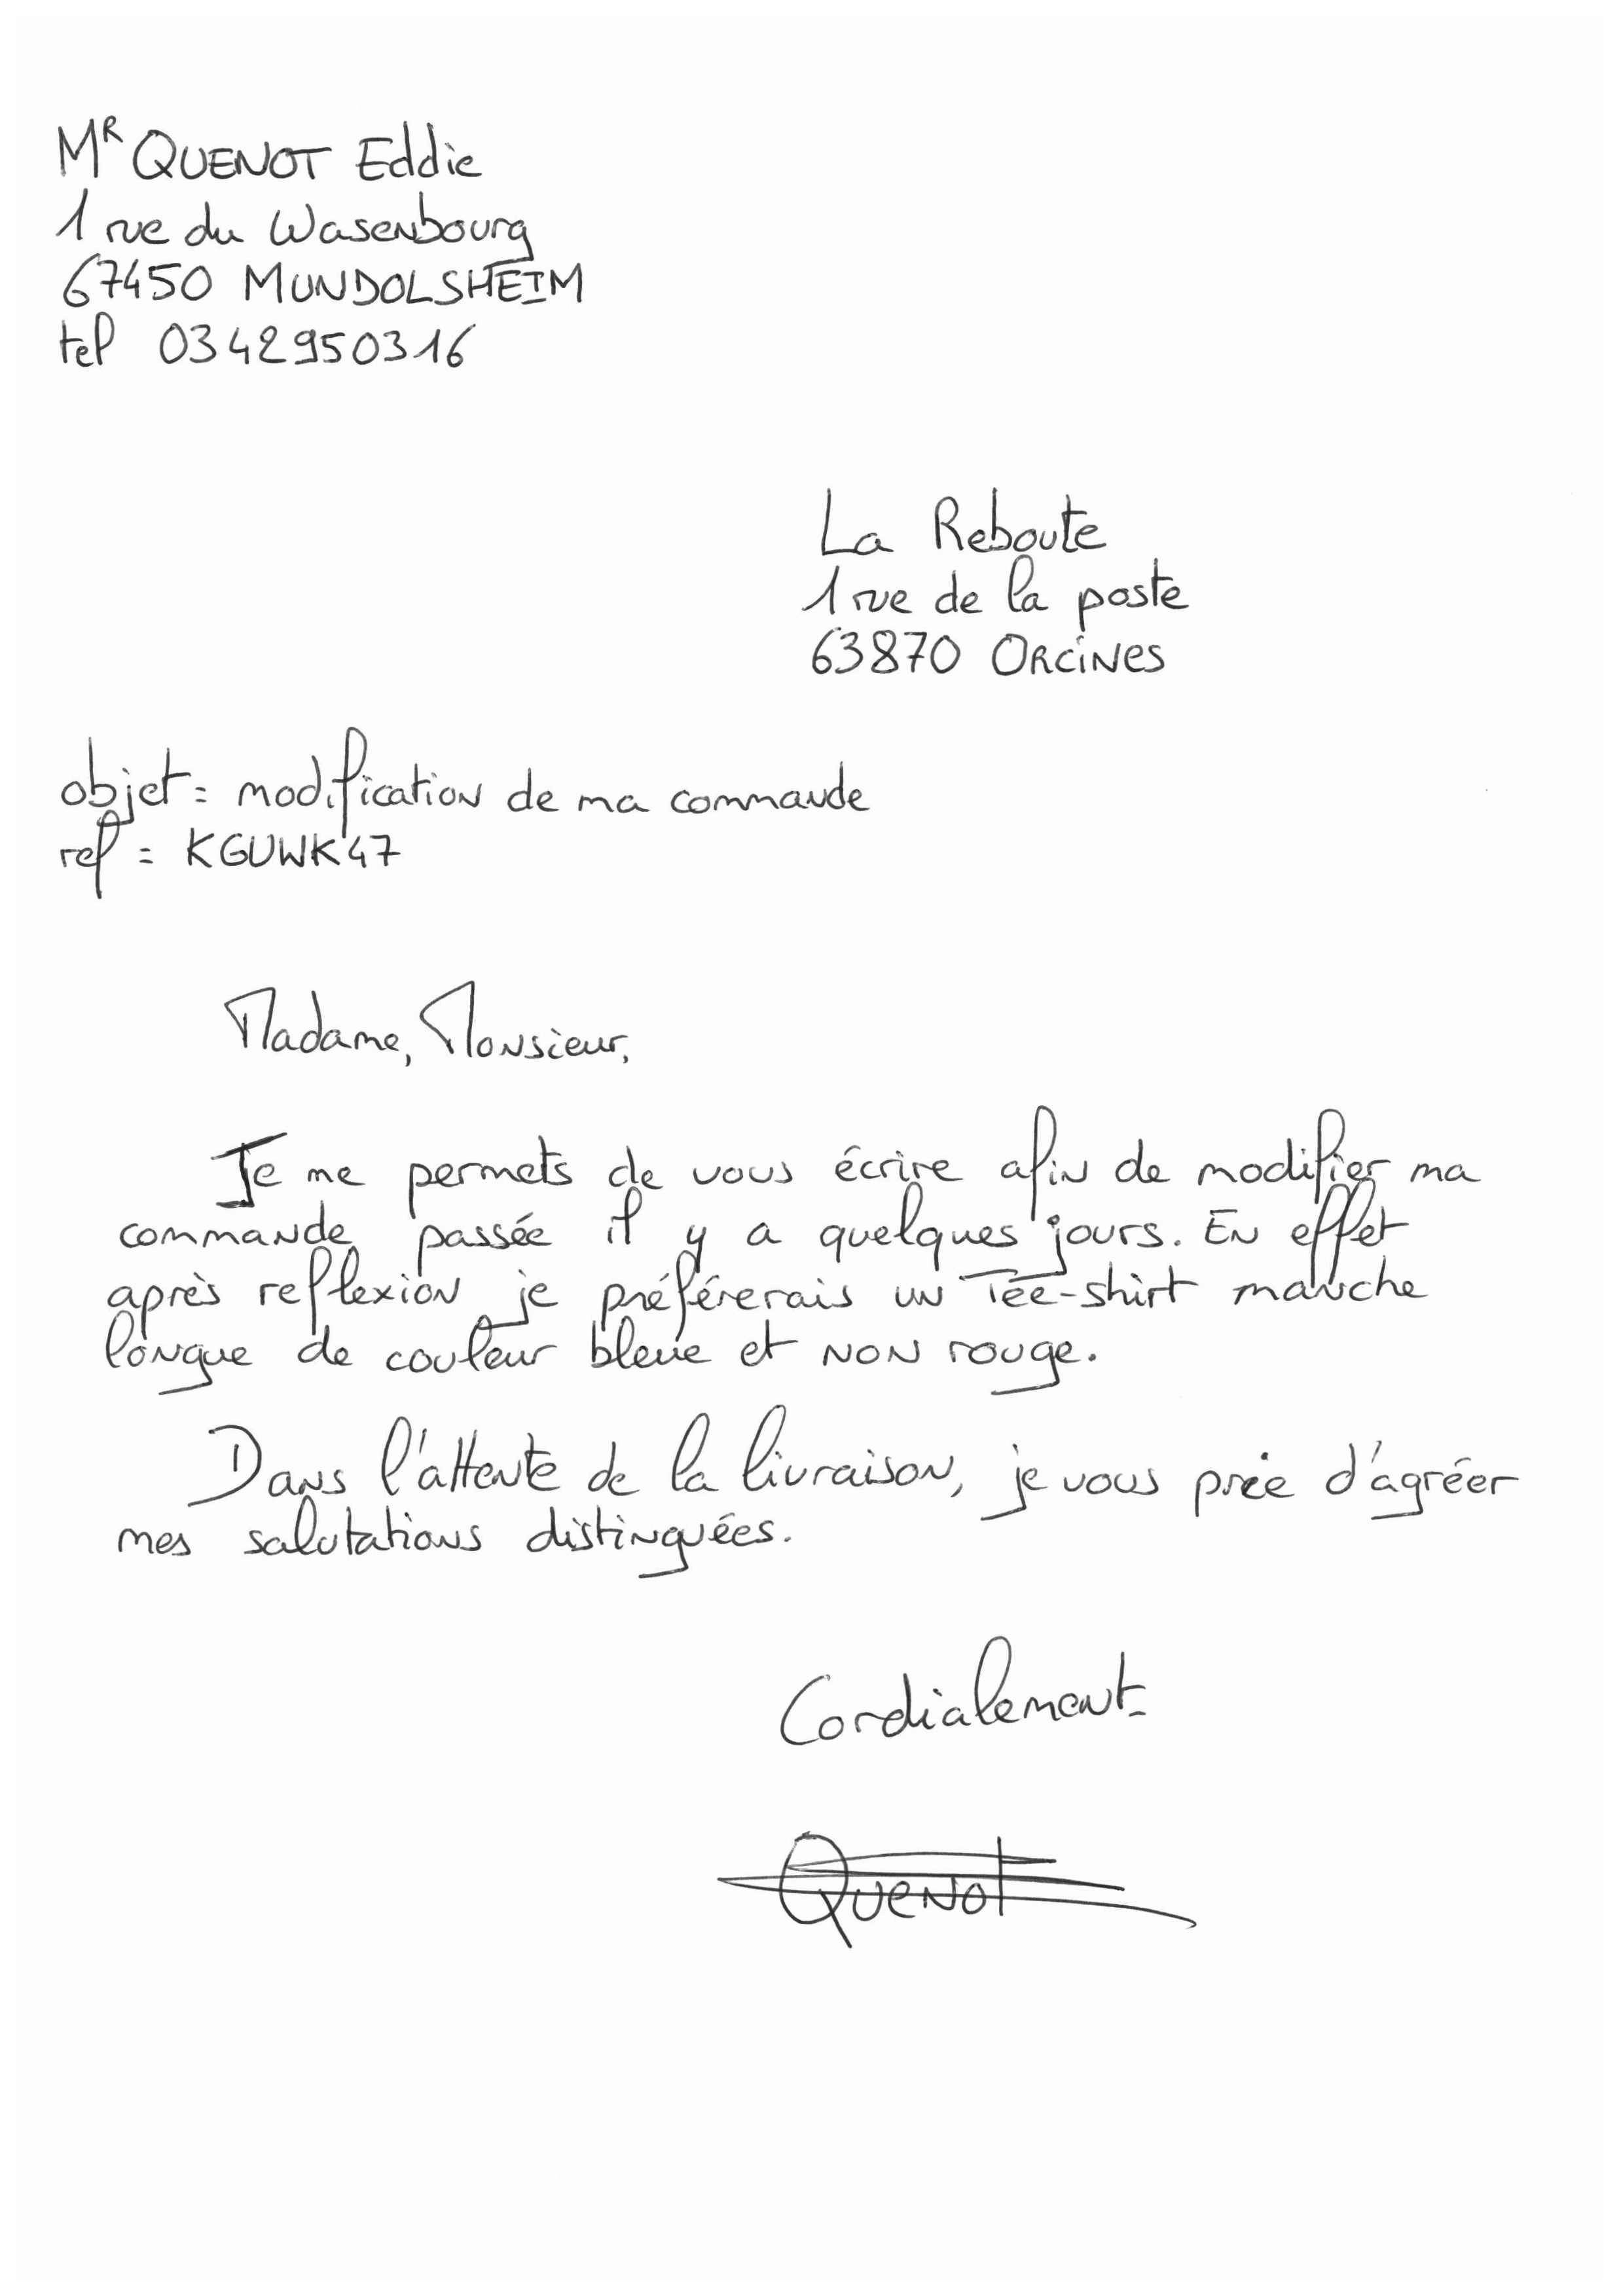 MR QUENOT Eddie
1 rue du Wasenbourg
67450 MUNDOLSHEIM
tel 0342950316
La Reboute
1 rue de la poste
63870 Orcines
objet = modification de ma commande
ref = KGUWK47
Madame, Monsieur,
Je me permets de vous écrire afin de modifier ma
commande passée il y a quelques jours. En effet
après reflexion je préférerais un Tee-shirt manche
longue de couleur bleue et non rouge.
Dans l'attente de la livraison, je vous prie d'agréer
mes salutations distinguées.
Cordialement
Quenot